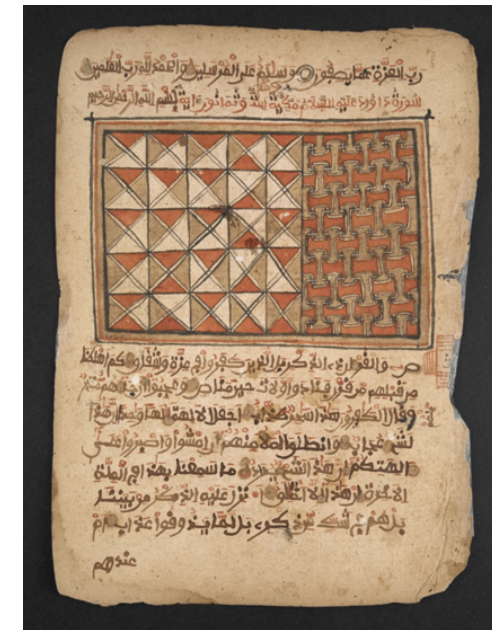 رب العزة عما يصفون وسلم على المرسلين والحمد لله رب العلمين
سورة داوود عليه السلام مكية ست وثمانون ءاية بسم الله الرحمن الرحيم
ص والقرءان ذي الذكر بل الذين كفروا في عزة وشقاق كم أهلكنا
من قبلهم من قرن فنادوا ولات حين مناص وعجبوا أن جاءهم منذر
منهم وقال الكفرون هذا سحر كذاب أجعل الألهة إلها وحدا إن هذا
لشيء عجاب وانطلق الملأ منهم أن امشوا واصبروا على
ءالهتكم إن هذا لشيء يراد ما سمعنا بهذا في الملة
الاخرة إن هذا إلا اختلق أنزل عليه الذكر من بيننا
بل هم في شك من ذكري بل لما يذوقوا عذاب أم
عندهم